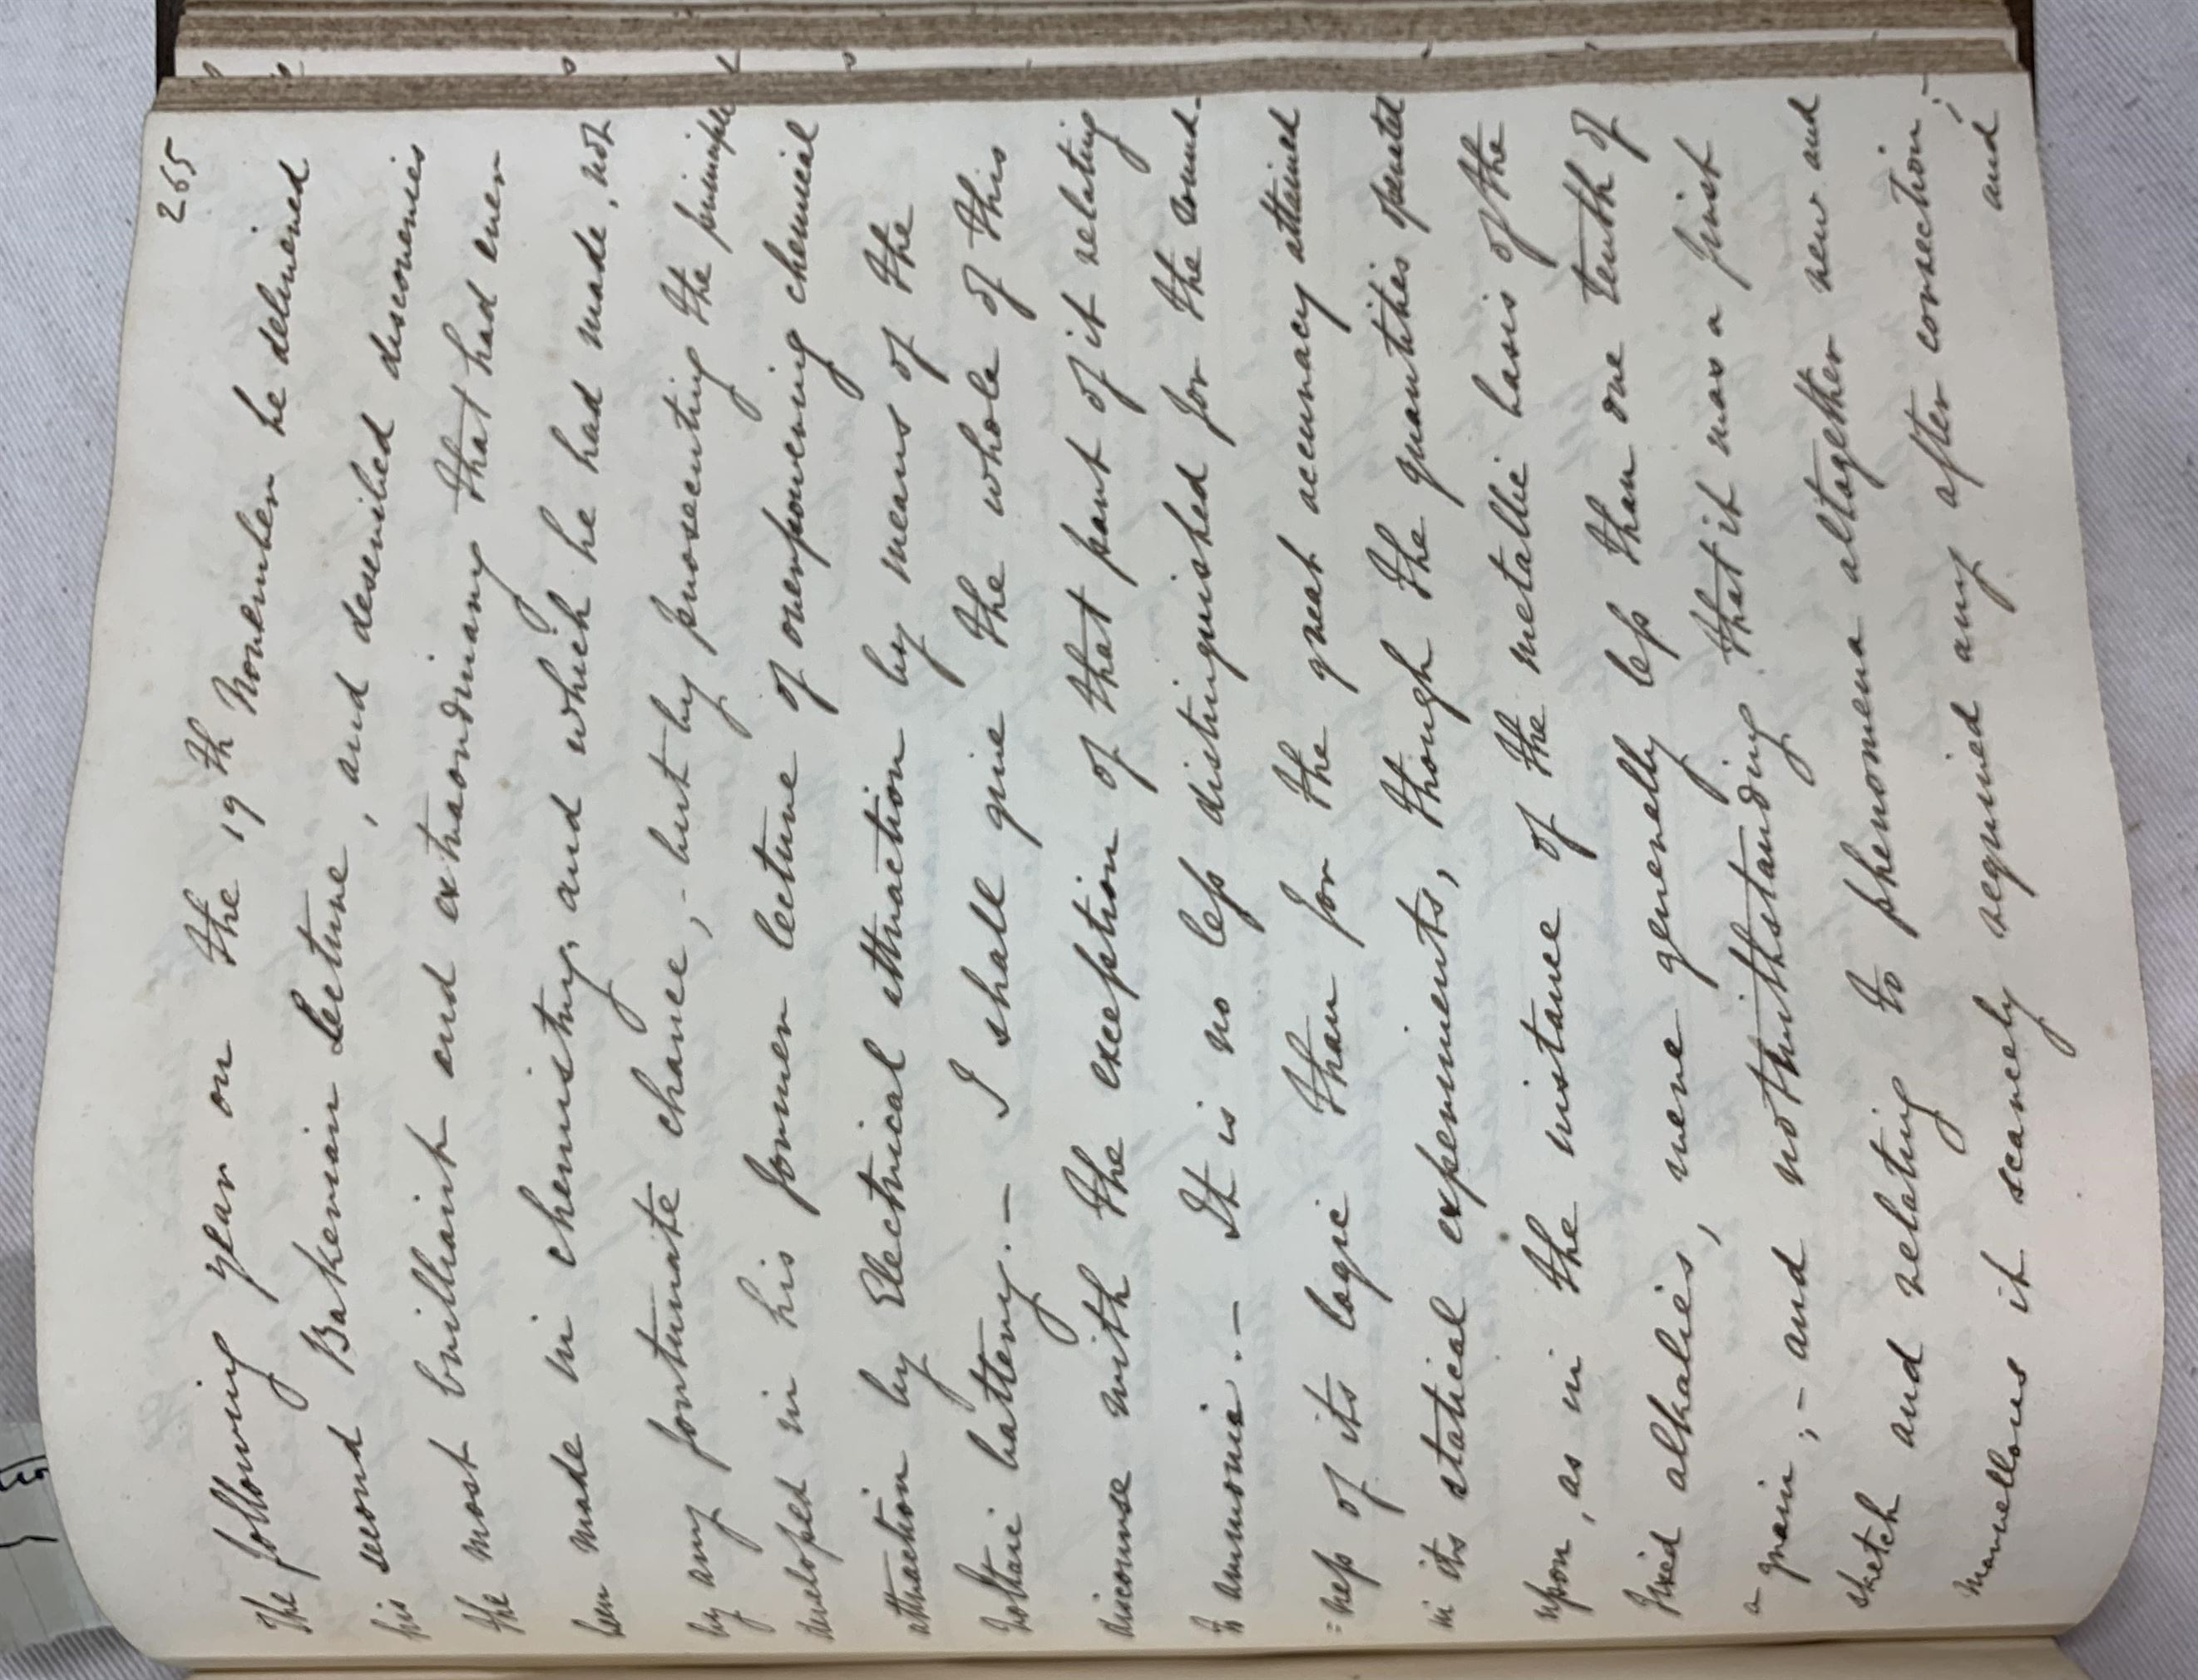 265
The following year on the 19th November he delivered
his second Bakerian Lecture, and described discoveries
the most brilliant and extraordinary that had ever
been made in chemistry, and which he had made, not
by any fortunate chance, - but by prosecuting the principle
developed in his former lecture of overpowering chemical
attraction by Electrical attraction by means of the
Voltaic battery. - I shall give the whole of this
discourse with the exception of that part of it relating
to ammonia. - It is no less distinguished for the sound-
=ness of its logic than for the great accuracy attained
in its statical experiments, though the quantities operated
upon, as in the instance of the metallic basis of the
fixed alkalies, were generally less than one tenth of
a grain; - and notwithstanding that it was a first
sketch and relating to phenomena altogether new and
marvellous it scarcely required any after correction; -
and